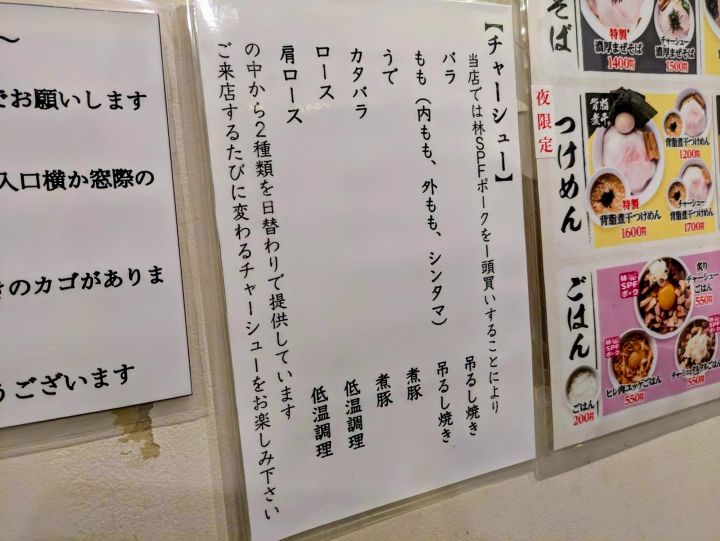 ～
でお願いします
入口横か窓際の
きのカゴがありま
うございます
【チャーシュー】
当店では林SPFポークを一頭買いすることにより
バラ 吊るし焼き
もも（内もも、外もも、シンタマ） 吊るし焼き
うで 煮豚
カタバラ 煮豚
ロース 低温調理
肩ロース 低温調理
の中から2種類を日替わりで提供しています
ご来店するたびに変わるチャーシューをお楽しみ下さい
そば
特製
濃厚まぜそば
1400円
チャーシュー
濃厚まぜそば
1500円
夜限定
つけめん
背脂
煮干
背脂煮干つけめん
1200円
特製
背脂煮干つけめん
1600円
チャーシュー
背脂煮干つけめん
1700円
ごはん
林
SPF
ポーク
炙り
チャーシュー
ごはん
550円
林
SPF
ポーク
ヒレ肉ユッケごはん
550円
550円
ごはん
200円